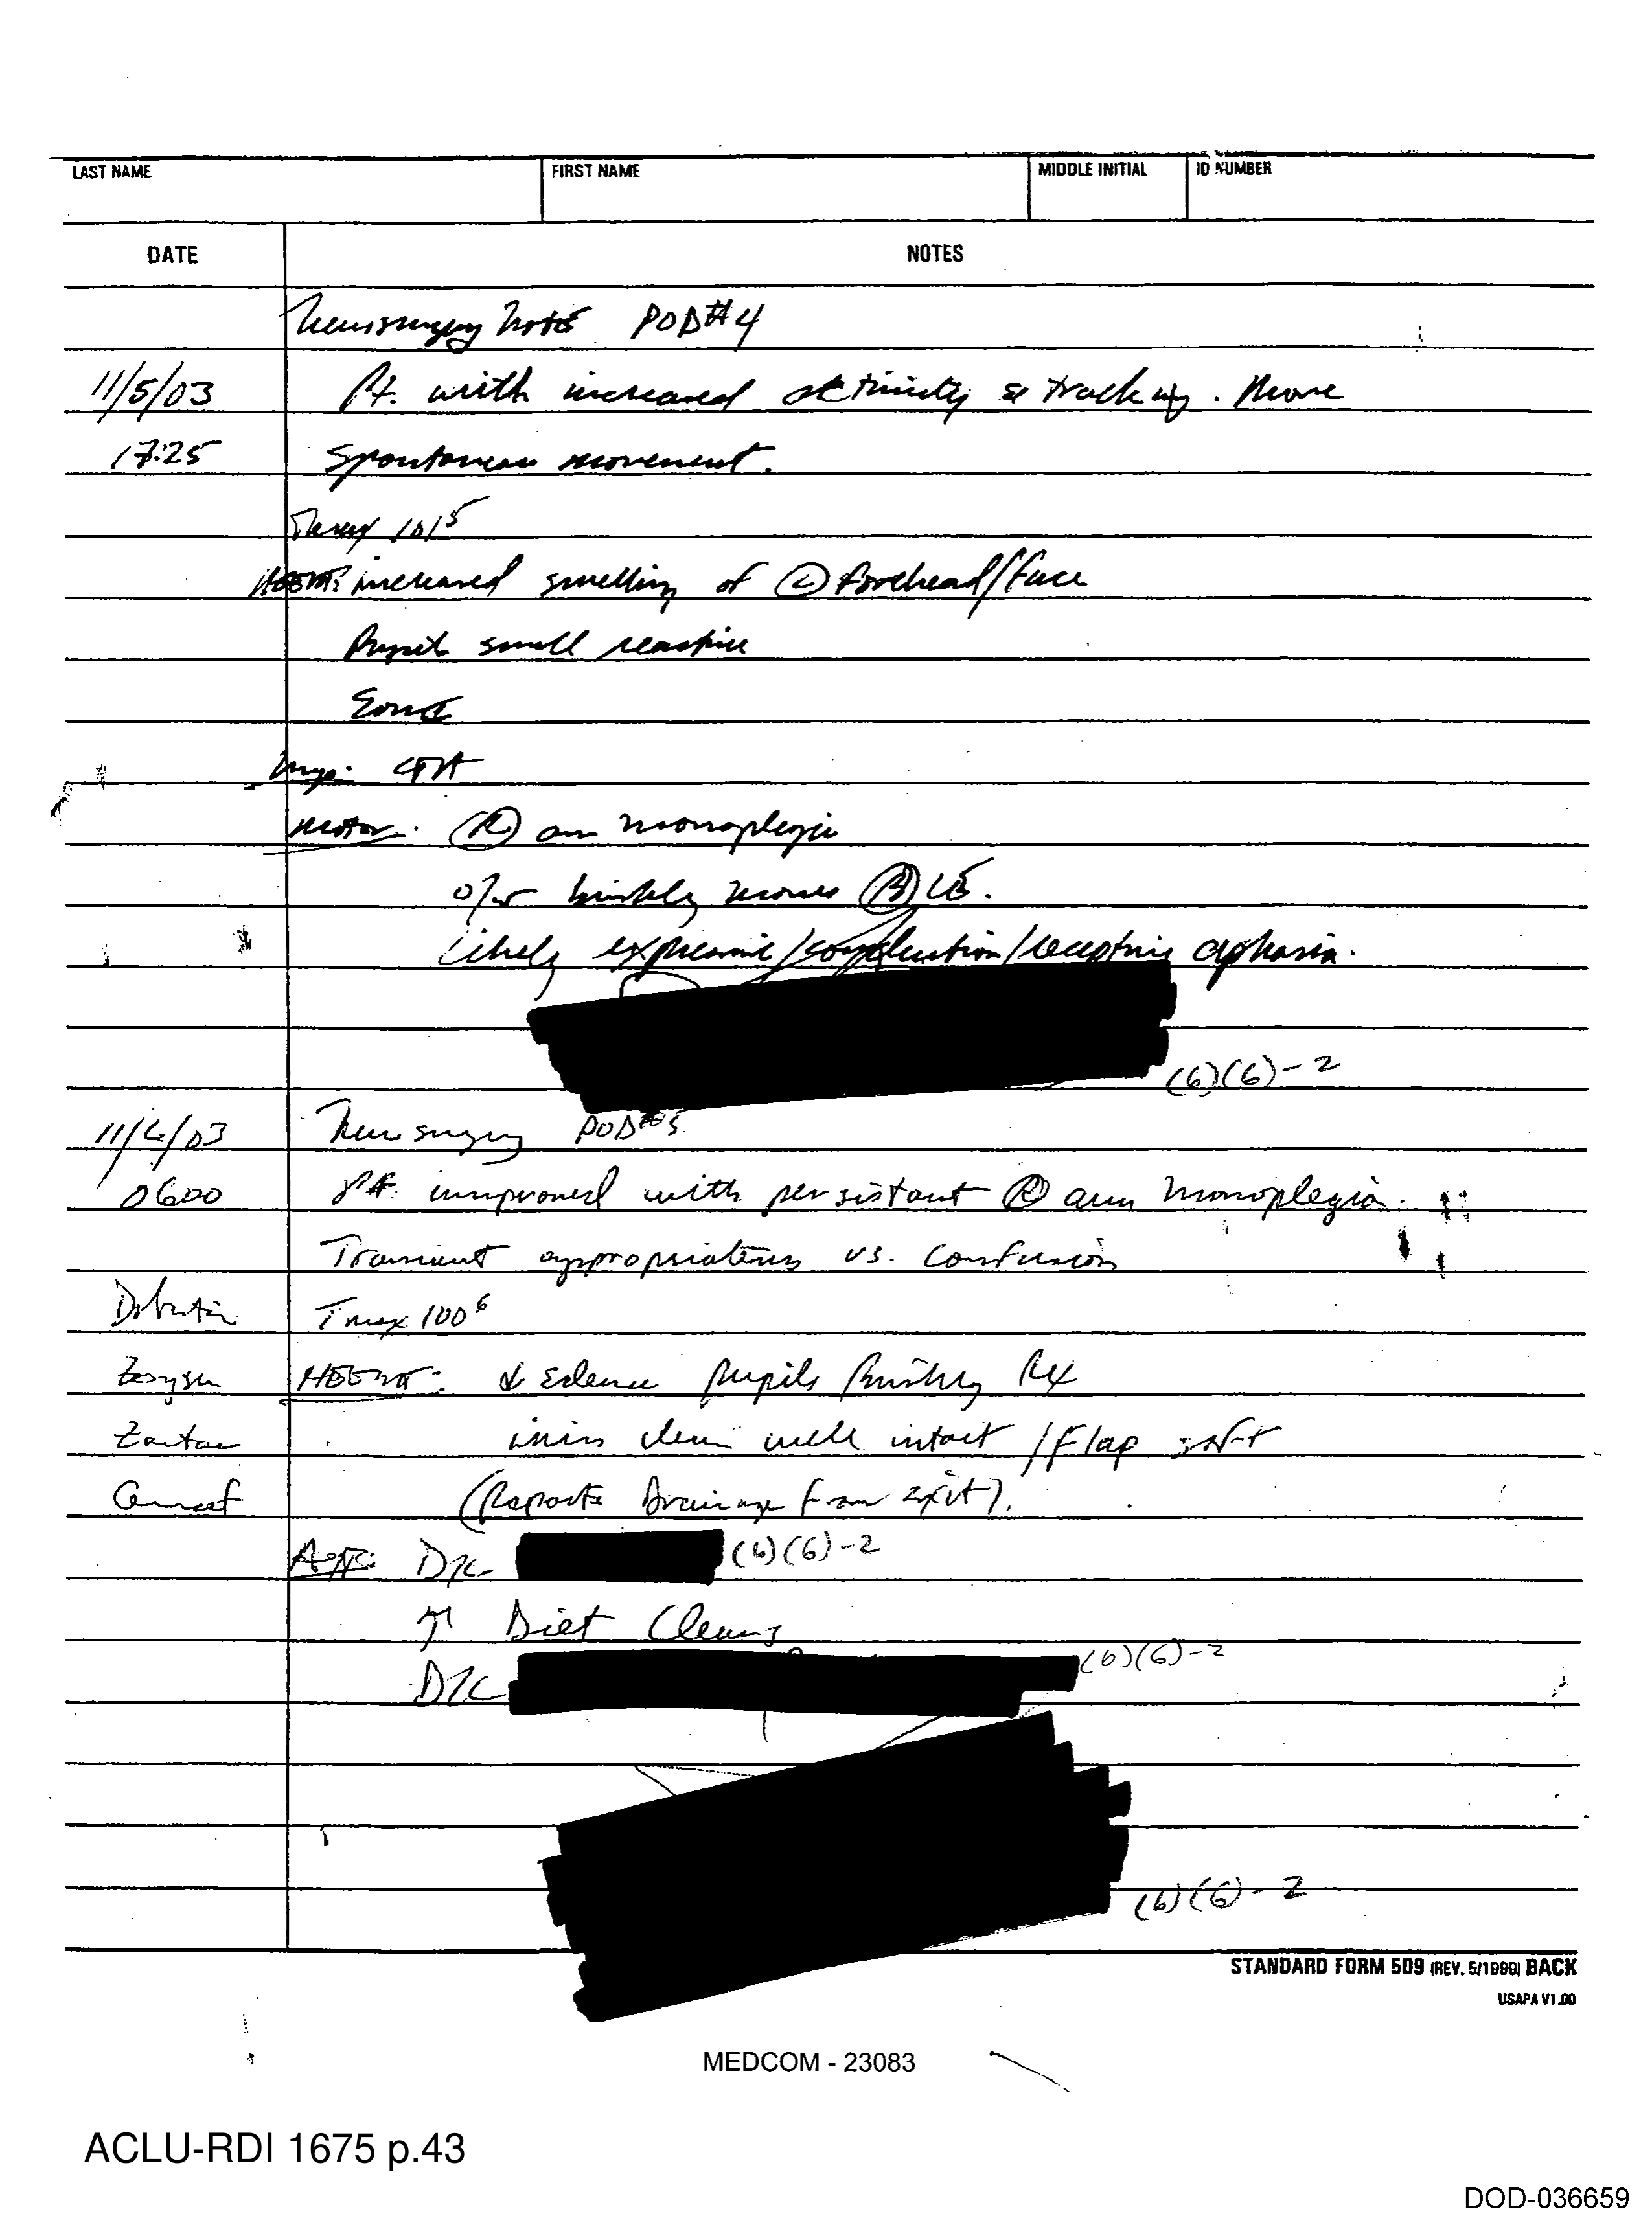 LAST NAME FIRST NAME MIDDLE INITIAL ID NUMBER
DATE NOTES
Neurosurgery Note POD#4
11/5/03 Pt. with increased activity & tracking. More
17:25 spontaneous movement.
Tmax 101⁵
HEENT: increased swelling of Ⓛ forehead/face
Pupils small reactive
EOMI
Lungs: CTA
Motor: Ⓡ arm monoplegia
briskly moves LE.
Likely expressive/conduction/receptive aphasia.
(6)(6)-2
11/6/03 Neurosurgery POD#5
0600 Pt improved with persistant Ⓡ arm monoplegia.
Transient appropriateness vs. confusion
Dilantin Tmax 100⁶
Zosyn HEENT: ↓ edema pupils briskly Rx
Zantac clean well intact / Flap soft
Ancef (Reports Drainage from exit).
D/C (6)(6)-2
↑ Diet Clears
D/C (6)(6)-2
(6)(6)-2
STANDARD FORM 509 (REV. 5/1999) BACK
USAPA V1.00
MEDCOM - 23083
ACLU-RDI 1675 p.43
DOD-036659